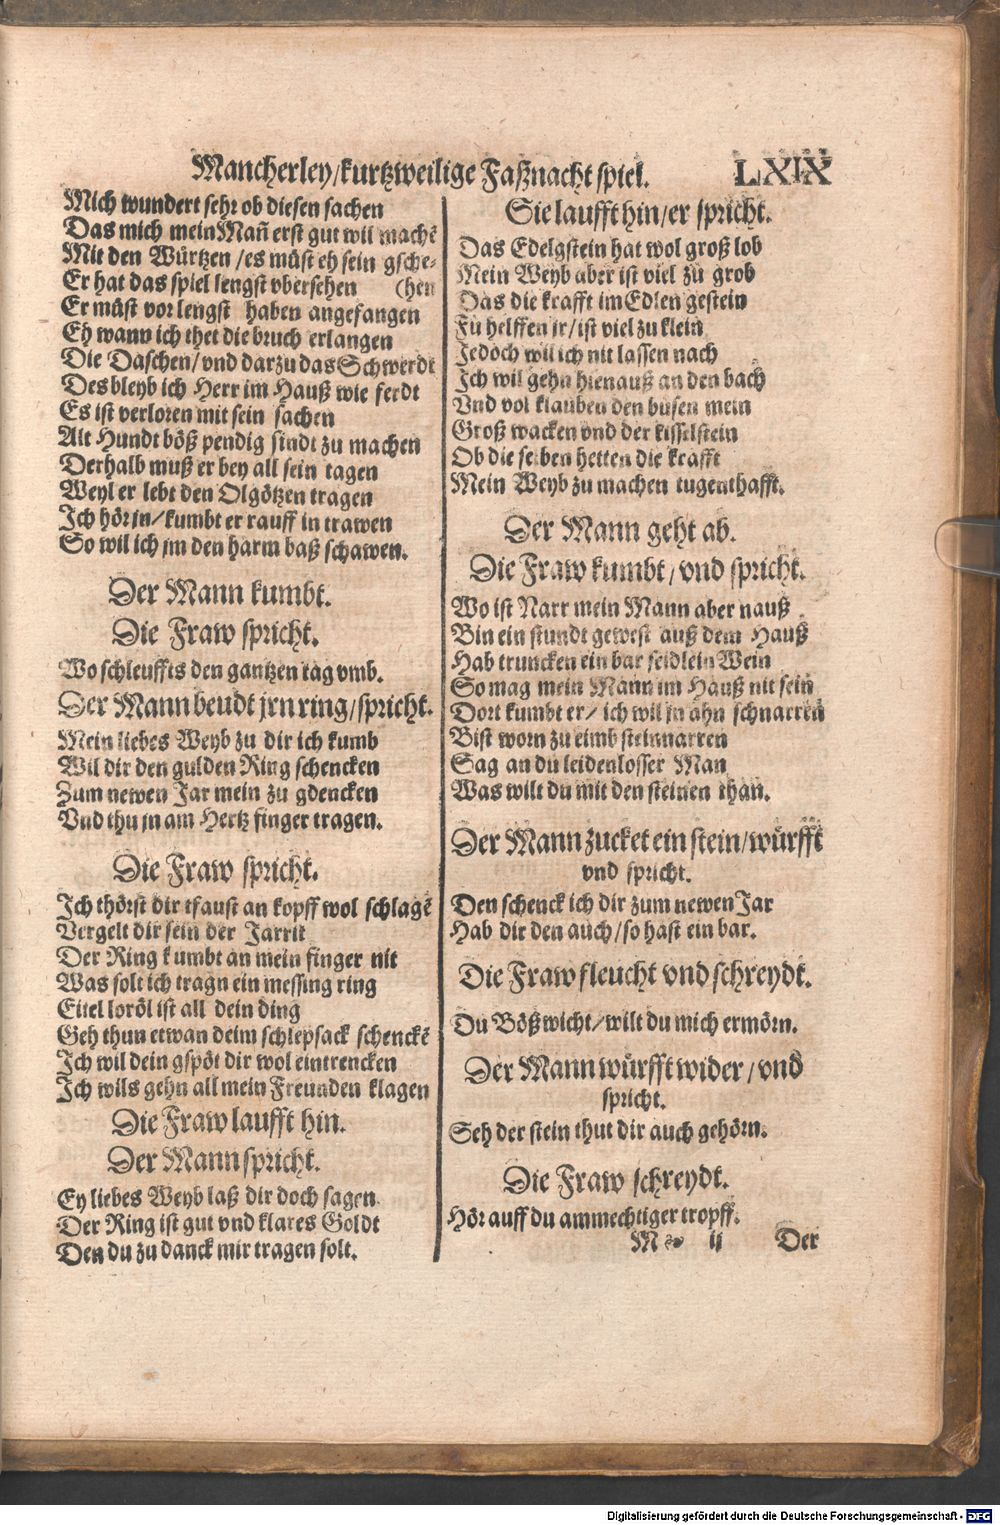 Mancherley/kurtzweilige Faßnacht spiel. LXIX
Mich wundert sehr ob diesen sachen
Das mich mein Mañ erst gut wil machẽ
Mit den Würtzen/es müst eh sein gsche-
Er hat das spiel lengst vbersehen (hen
Er müst vor lengst haben angefangen
Eh wann ich thet die bruch erlangen
Die Daschen/vnd darzu das Schwerdt
Des bleyb ich Herr im Hauß wie ferdt
Es ist verloren mit sein sachen
Alt Hundt böß pendig sindt zu machen
Derhalb muß er bey all sein tagen
Weyl er lebt den Olgötzen tragen
Ich hör jn/kumbt er rauff in trawen
So wil ich jm den harm baß schawen.
Der Mann kumbt.
Die Fraw spricht.
Wo schleuffts den gantzen tag vmb.
Der Mann beudt jrn ring/spricht.
Mein liebes Weyb zu dir ich kumb
Wil dir den gulden Ring schencken
Zum newen Jar mein zu gdencken
Vnd thu jn am Hertz finger tragen.
Die Fraw spricht.
Ich thörst dir tfaust an kopff wol schlagẽ
Vergelt dir sein der Jarrit
Der Ring kumbt an mein finger nit
Was solt ich tragn ein messing ring
Eitel loröl ist all dein ding
Geh thun etwan deim schlepsack schenckẽ
Ich wil dein gspöt dir wol eintrencken
Ich wils gehn all mein Freunden klagen
Die Fraw laufft hin.
Der Mann spricht.
Ey liebes Weyb laß dir doch sagen
Der Ring ist gut vnd klares Goldt
Den du zu danck mir tragen solt.
Sie laufft hin/er spricht.
Das Edelgstein hat wol groß lob
Mein Weyb aber ist viel zu grob
Das die krafft im Edlen gestein
Fü helffen jr/ist viel zu klein
Jedoch wil ich nit lassen nach
Ich wil gehn hienauß an den bach
Vnd vol klauben den busen mein
Groß wacken vnd der kisselstein
Ob die selben hetten die krafft
Mein Weyb zu machen tugenthafft.
Der Mann geht ab.
Die Fraw kumbt/vnd spricht.
Wo ist Narr mein Mann aber nauß
Bin ein stundt gewest auß dem Hauß
Hab truncken ein bar seidlein Wein
So mag mein Mann im Hauß nit sein
Dort kumbt er/ich wil jn ahn schnarren
Bist worn zu eimb steinnarren
Sag an du leidenlosser Man
Was wilt du mit den steinen than.
Der Mann zucket ein stein/würfft
vnd spricht.
Den schenck ich dir zum newen Jar
Hab dir den auch/so hast ein bar.
Die Fraw fleucht vnd schreydt.
Du Bößwicht/wilt du mich ermörn.
Der Mann würfft wider/vnd
spricht.
Seh der stein thut dir auch gehörn.
Die Fraw schreydt.
Hör auff du ammechtiger tropff.
M ij Der
Digitalisierung gefördert durch die Deutsche Forschungsgemeinschaft - DFG